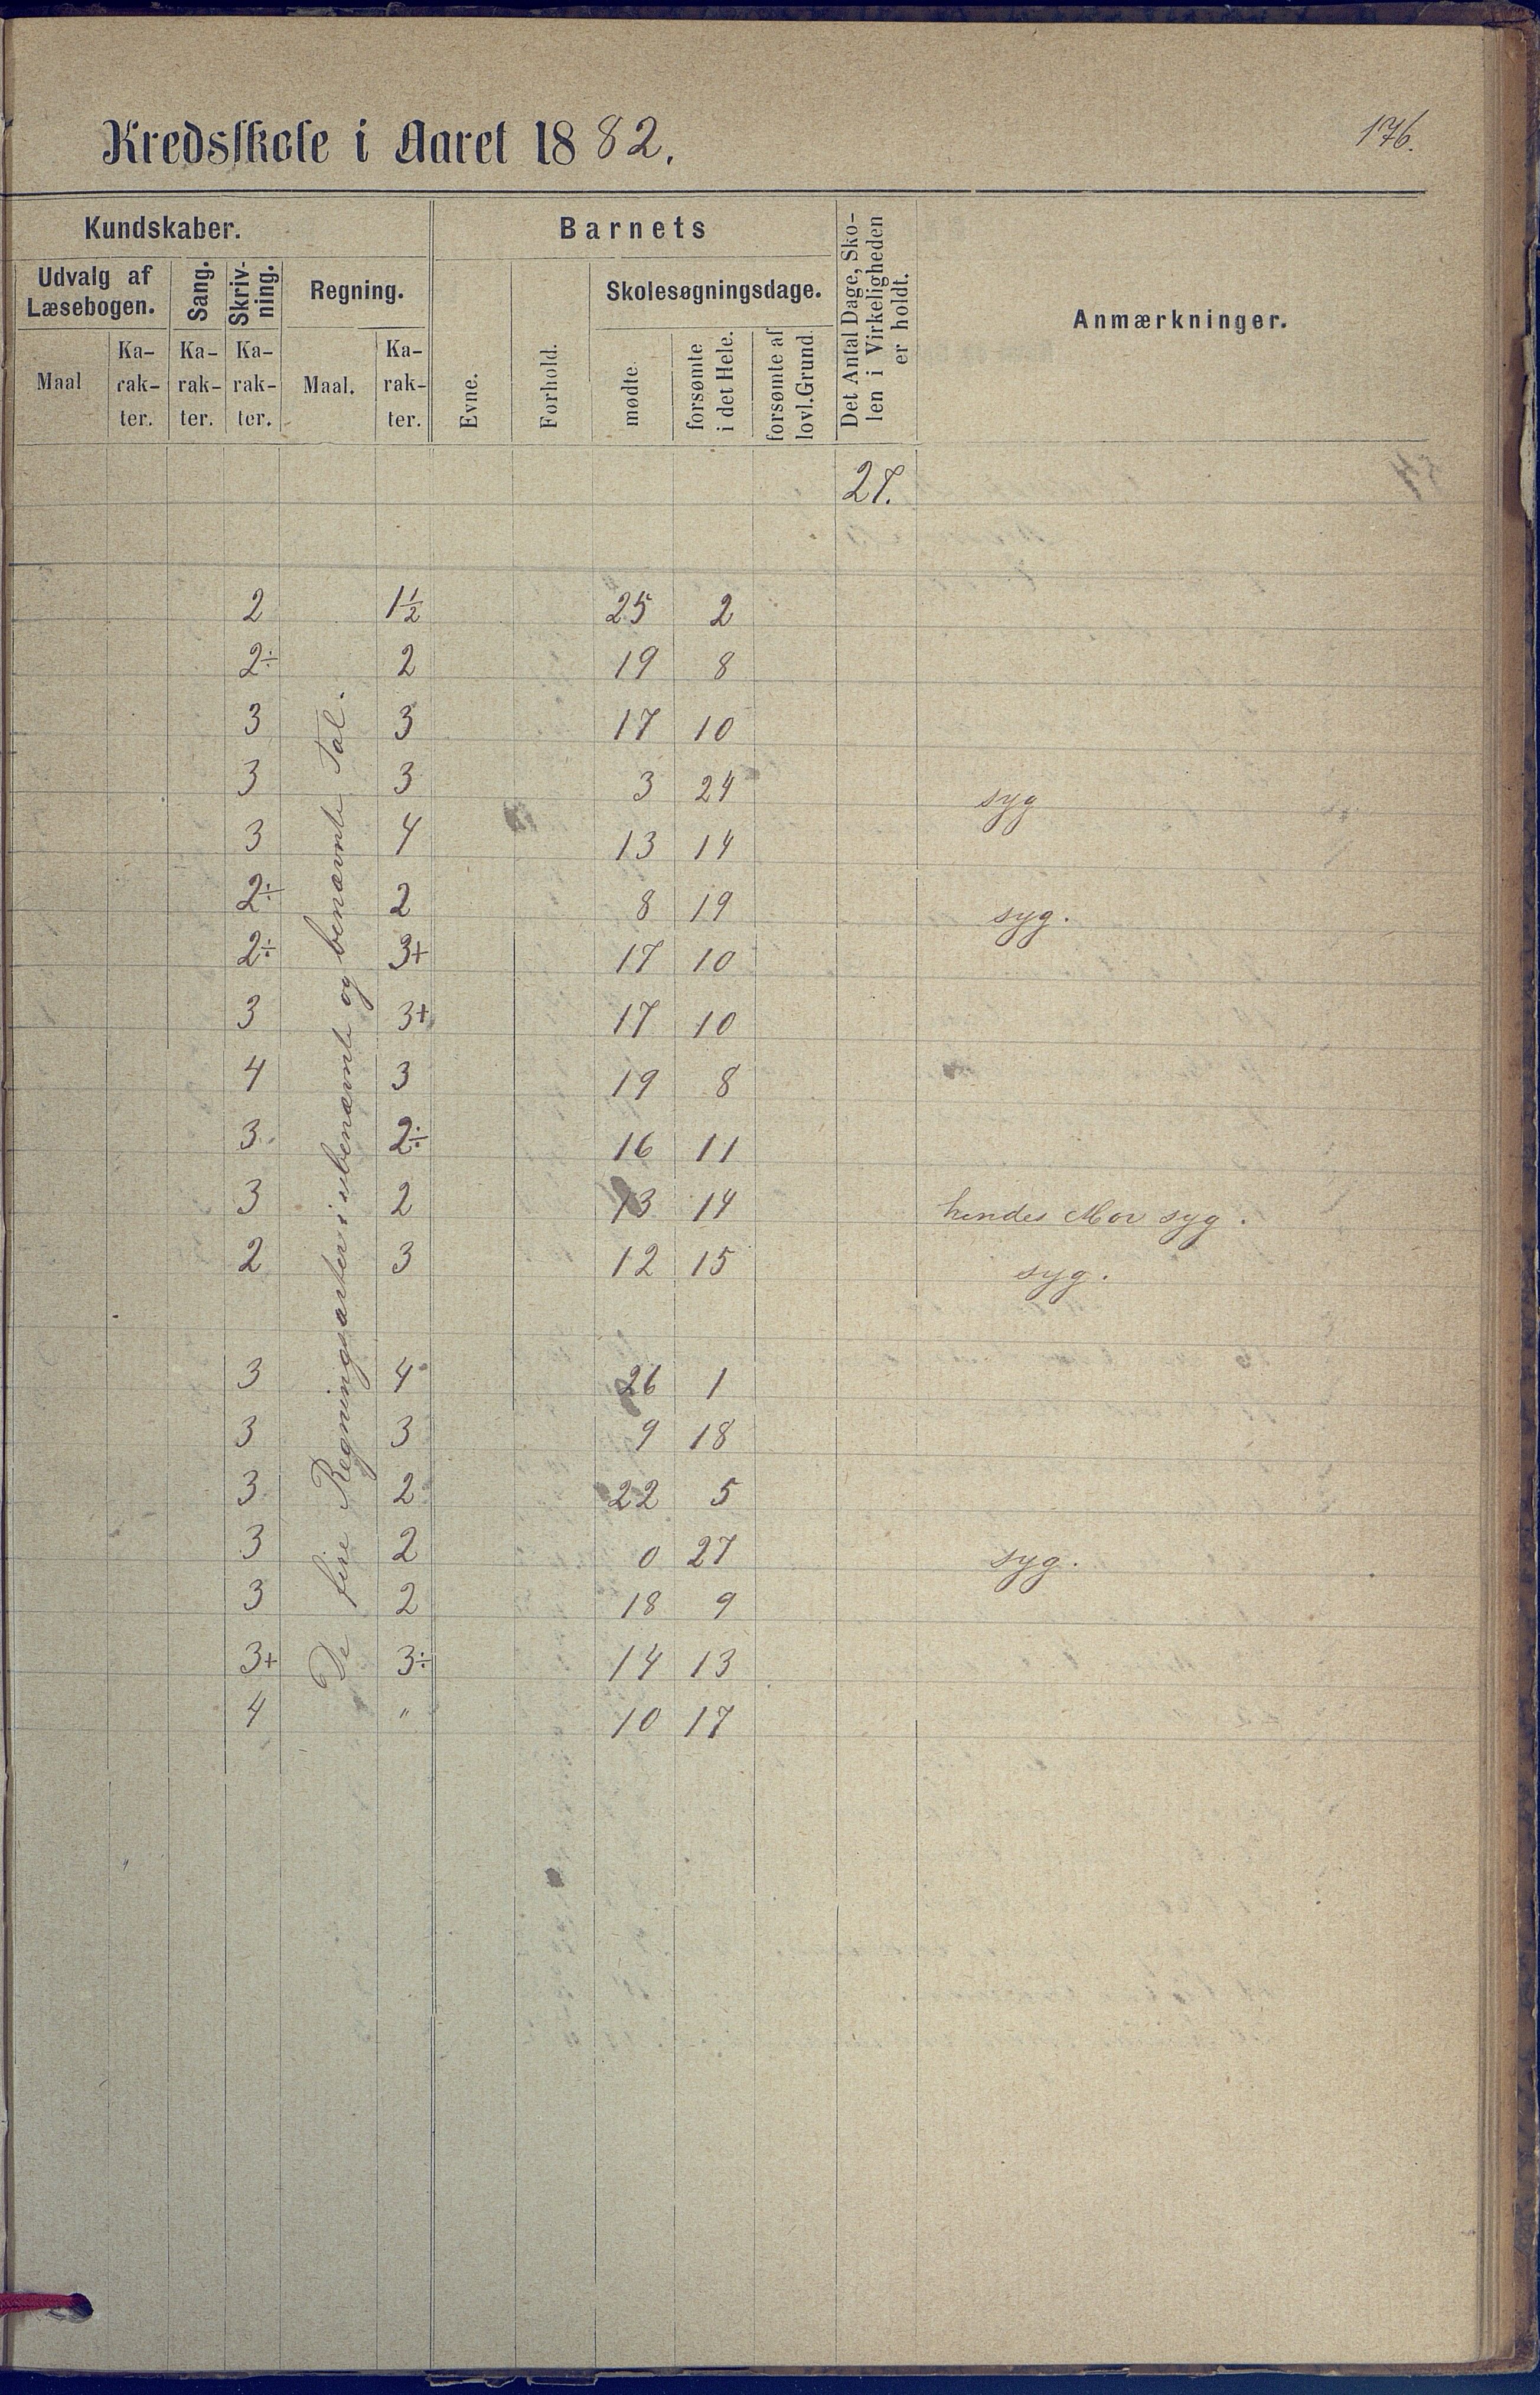 Kredsskole i Aaret 1882.
176.
Kundskaber.
Barnets
Det Antal Dage, Sko-
len i Virkeligheden
er holdt.
Anmærkninger.
Udvalg af
Læsebogen.
Sang.
Skriv-
ning.
Regning.
Evne.
Forhold.
Skolesøgningsdage.
Maal
Ka-
rak-
ter.
Ka-
rak-
ter.
Ka-
rak-
ter.
Maal.
Ka-
rak-
ter.
mødte
forsømte
i det Hele.
forsømte af
lovl. Grund.
27.
De fire Regningsarter i ubenævnte og benævnte Tal.
2 1½ 25 2
2÷ 2 19 8
3 3 17 10
3 3 3 24 syg
3 4 13 14
2÷ 2 8 19 syg.
2÷ 3+ 17 10
3 3+ 17 10
4 3 19 8
3 2÷ 16 11
3 2 13 14 hendes Mor syg.
2 3 12 15 syg.
3 4 26 1
3 3 9 18
3 2 22 5
3 2 0 27 syg.
3 2 18 9
3+ 3÷ 14 13
4 " 10 17